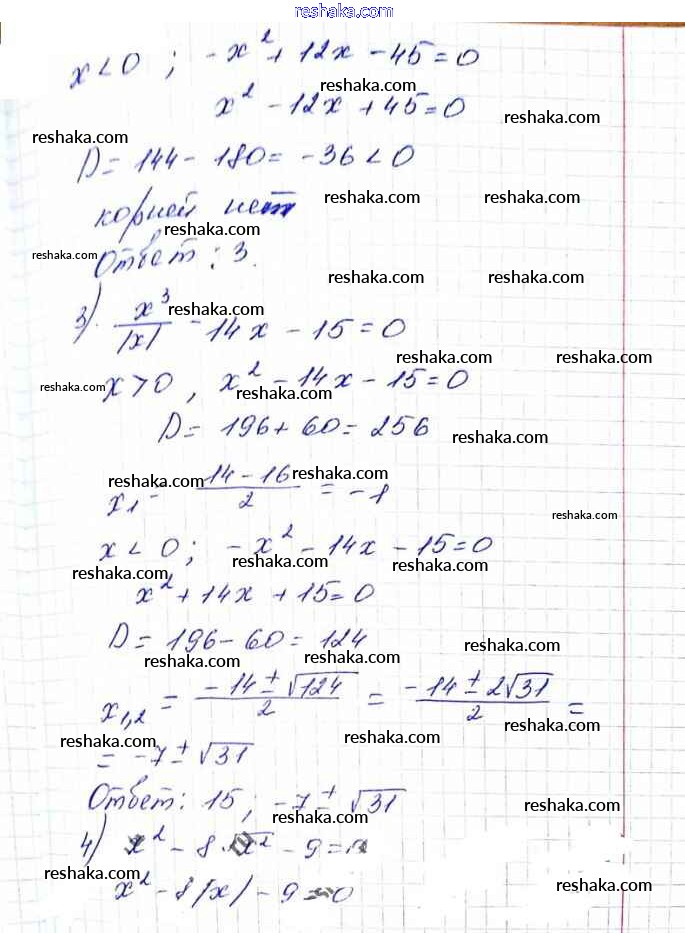 reshaka.com
x < 0 ; -x² + 12x - 45 = 0
reshaka.com
x² - 12x + 45 = 0
reshaka.com
reshaka.com
D = 144 - 180 = -36 < 0
reshaka.com reshaka.com
корней нет
reshaka.com
reshaka.com
Ответ : 3.
reshaka.com reshaka.com
3) x³/|x| - 14x - 15 = 0
reshaka.com
reshaka.com reshaka.com
reshaka.com
x > 0 , x² - 14x - 15 = 0
reshaka.com
D = 196 + 60 = 256
reshaka.com
reshaka.com reshaka.com
x₁ = (14 - 16)/2 = -1
reshaka.com
x < 0 ; -x² - 14x - 15 = 0
reshaka.com reshaka.com reshaka.com
x² + 14x + 15 = 0
D = 196 - 60 = 124
reshaka.com
reshaka.com reshaka.com
x₁,₂ = (-14 ± √124)/2 = (-14 ± 2√31)/2 =
reshaka.com
reshaka.com reshaka.com
= -7 ± √31
Ответ: 15 ; -7 ± √31
reshaka.com
reshaka.com
4) x² - 8√x² - 9 =
reshaka.com
x² - 8|x| - 9 = 0
reshaka.com